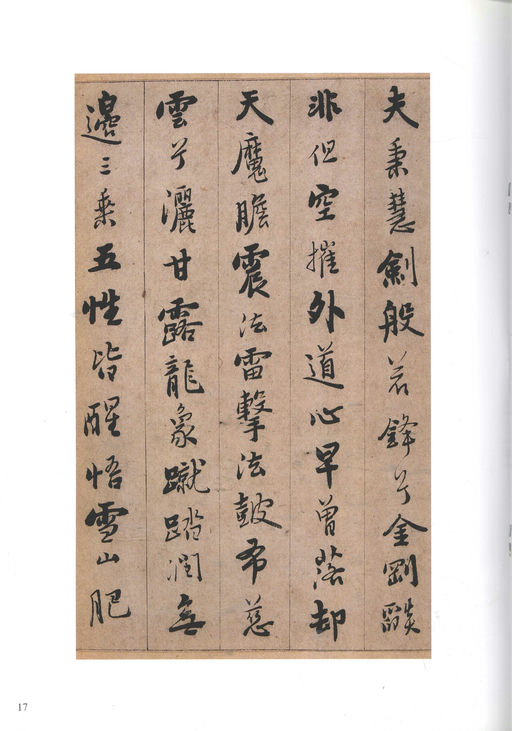 夫秉慧劍般若鋒兮金剛燄
非但空摧外道心早曾落却
天魔膽震法雷擊法皷布慈
雲兮灑甘露龍象蹴踏潤無
邊三乘五性皆醒悟雪山肥
17